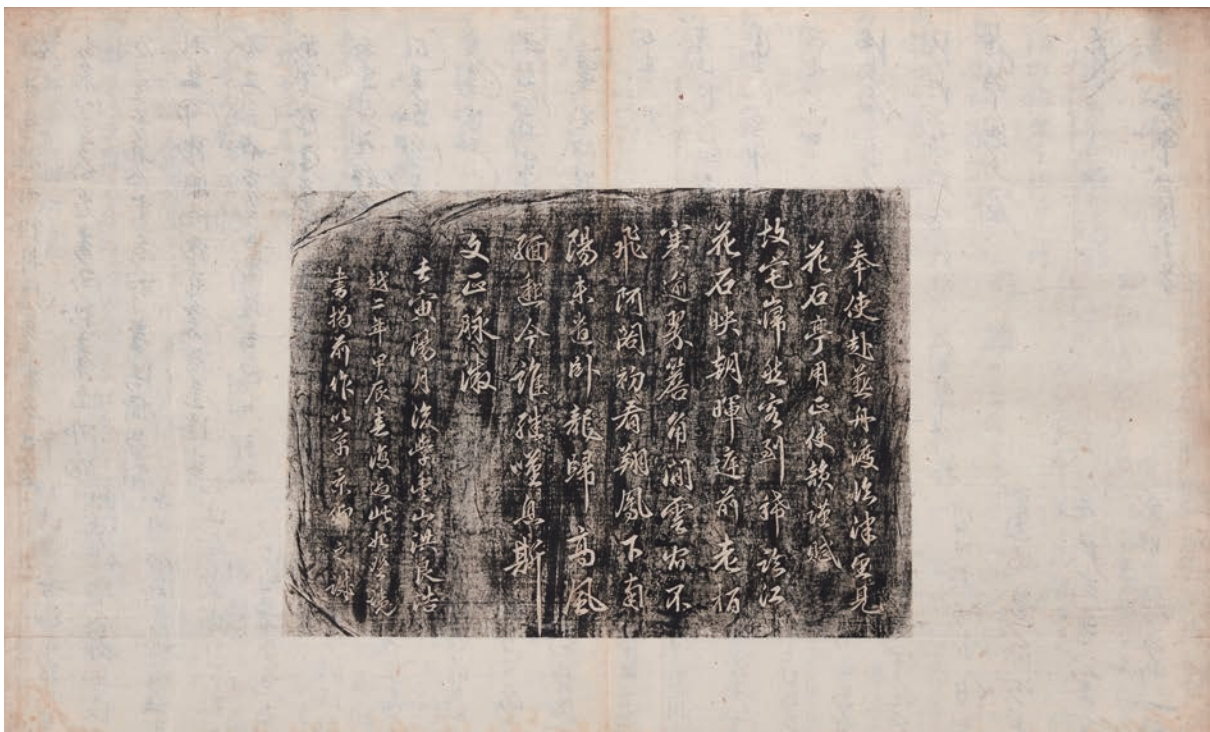 奉使赴燕舟渡臨津望見
花石亭用正使韻謹賦
故宅蕭然客到稀臨江
花石映朝暉庭前老栢
寒逾翠簷角閒雲宿不
飛阿閣初看翔鳳下南
陽未道臥龍歸高風
緬邈今誰繼嘆息斯
文正脉微
壬寅陽月後學豊山洪良浩
越二年甲辰春復過此始登覽
書揭前作以寓景仰之忱